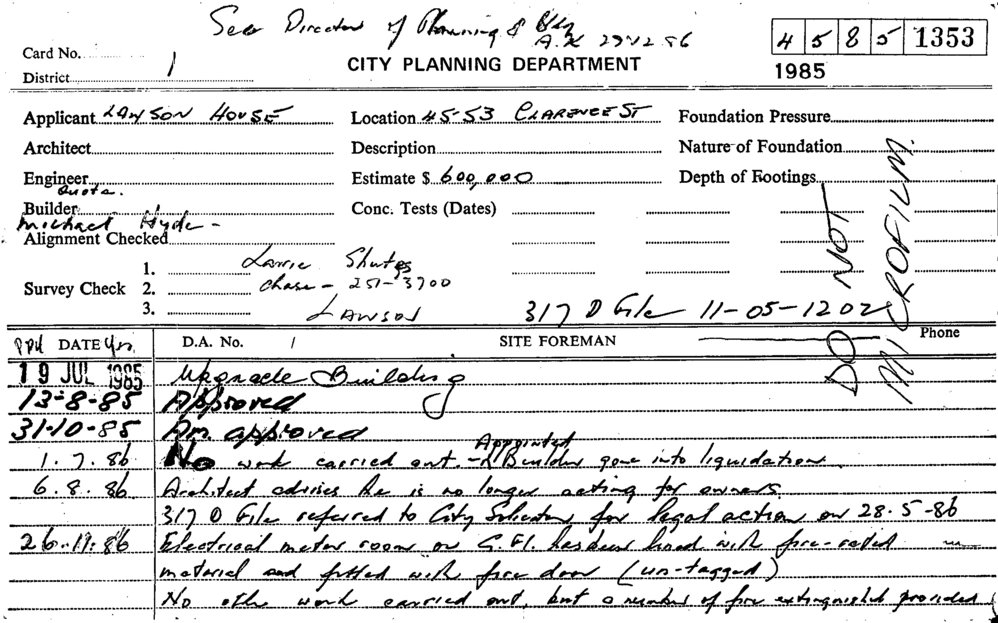 See Director of Planning & Bldg
A.K 29.12.86
4 5 8 5 1353
Card No.
CITY PLANNING DEPARTMENT
1985
District 1
Applicant LAWSON HOUSE Location 45-53 CLARENCE ST Foundation Pressure
Architect Description Nature of Foundation
Engineer Estimate $ 600,000 Depth of Footings
Quota.
Builder Conc. Tests (Dates)
Michael Hyde -
Alignment Checked
1. Larrie
Survey Check 2. Chase - 251-3700
3. LAWSON 317 D File 11-05-1202
DO NOT
MICROFILM.
DATE D.A. No. 1 SITE FOREMAN Phone
19 JUL 1985 Upgrade Building
13-8-85 Approved
31-10-85 Am. approved
1.7.86 No work carried out. - Appointed Builder gone into liquidation.
6.8.86 Architect advises he is no longer acting for owners.
317 D File referred to City Solicitor for legal action on 28.5-86
26.11.86 Electrical meter room on G.Fl. has been lined with fire-rated
material and fitted with fire door (un-tagged)
No other work carried out, but a number of fire extinguished provided